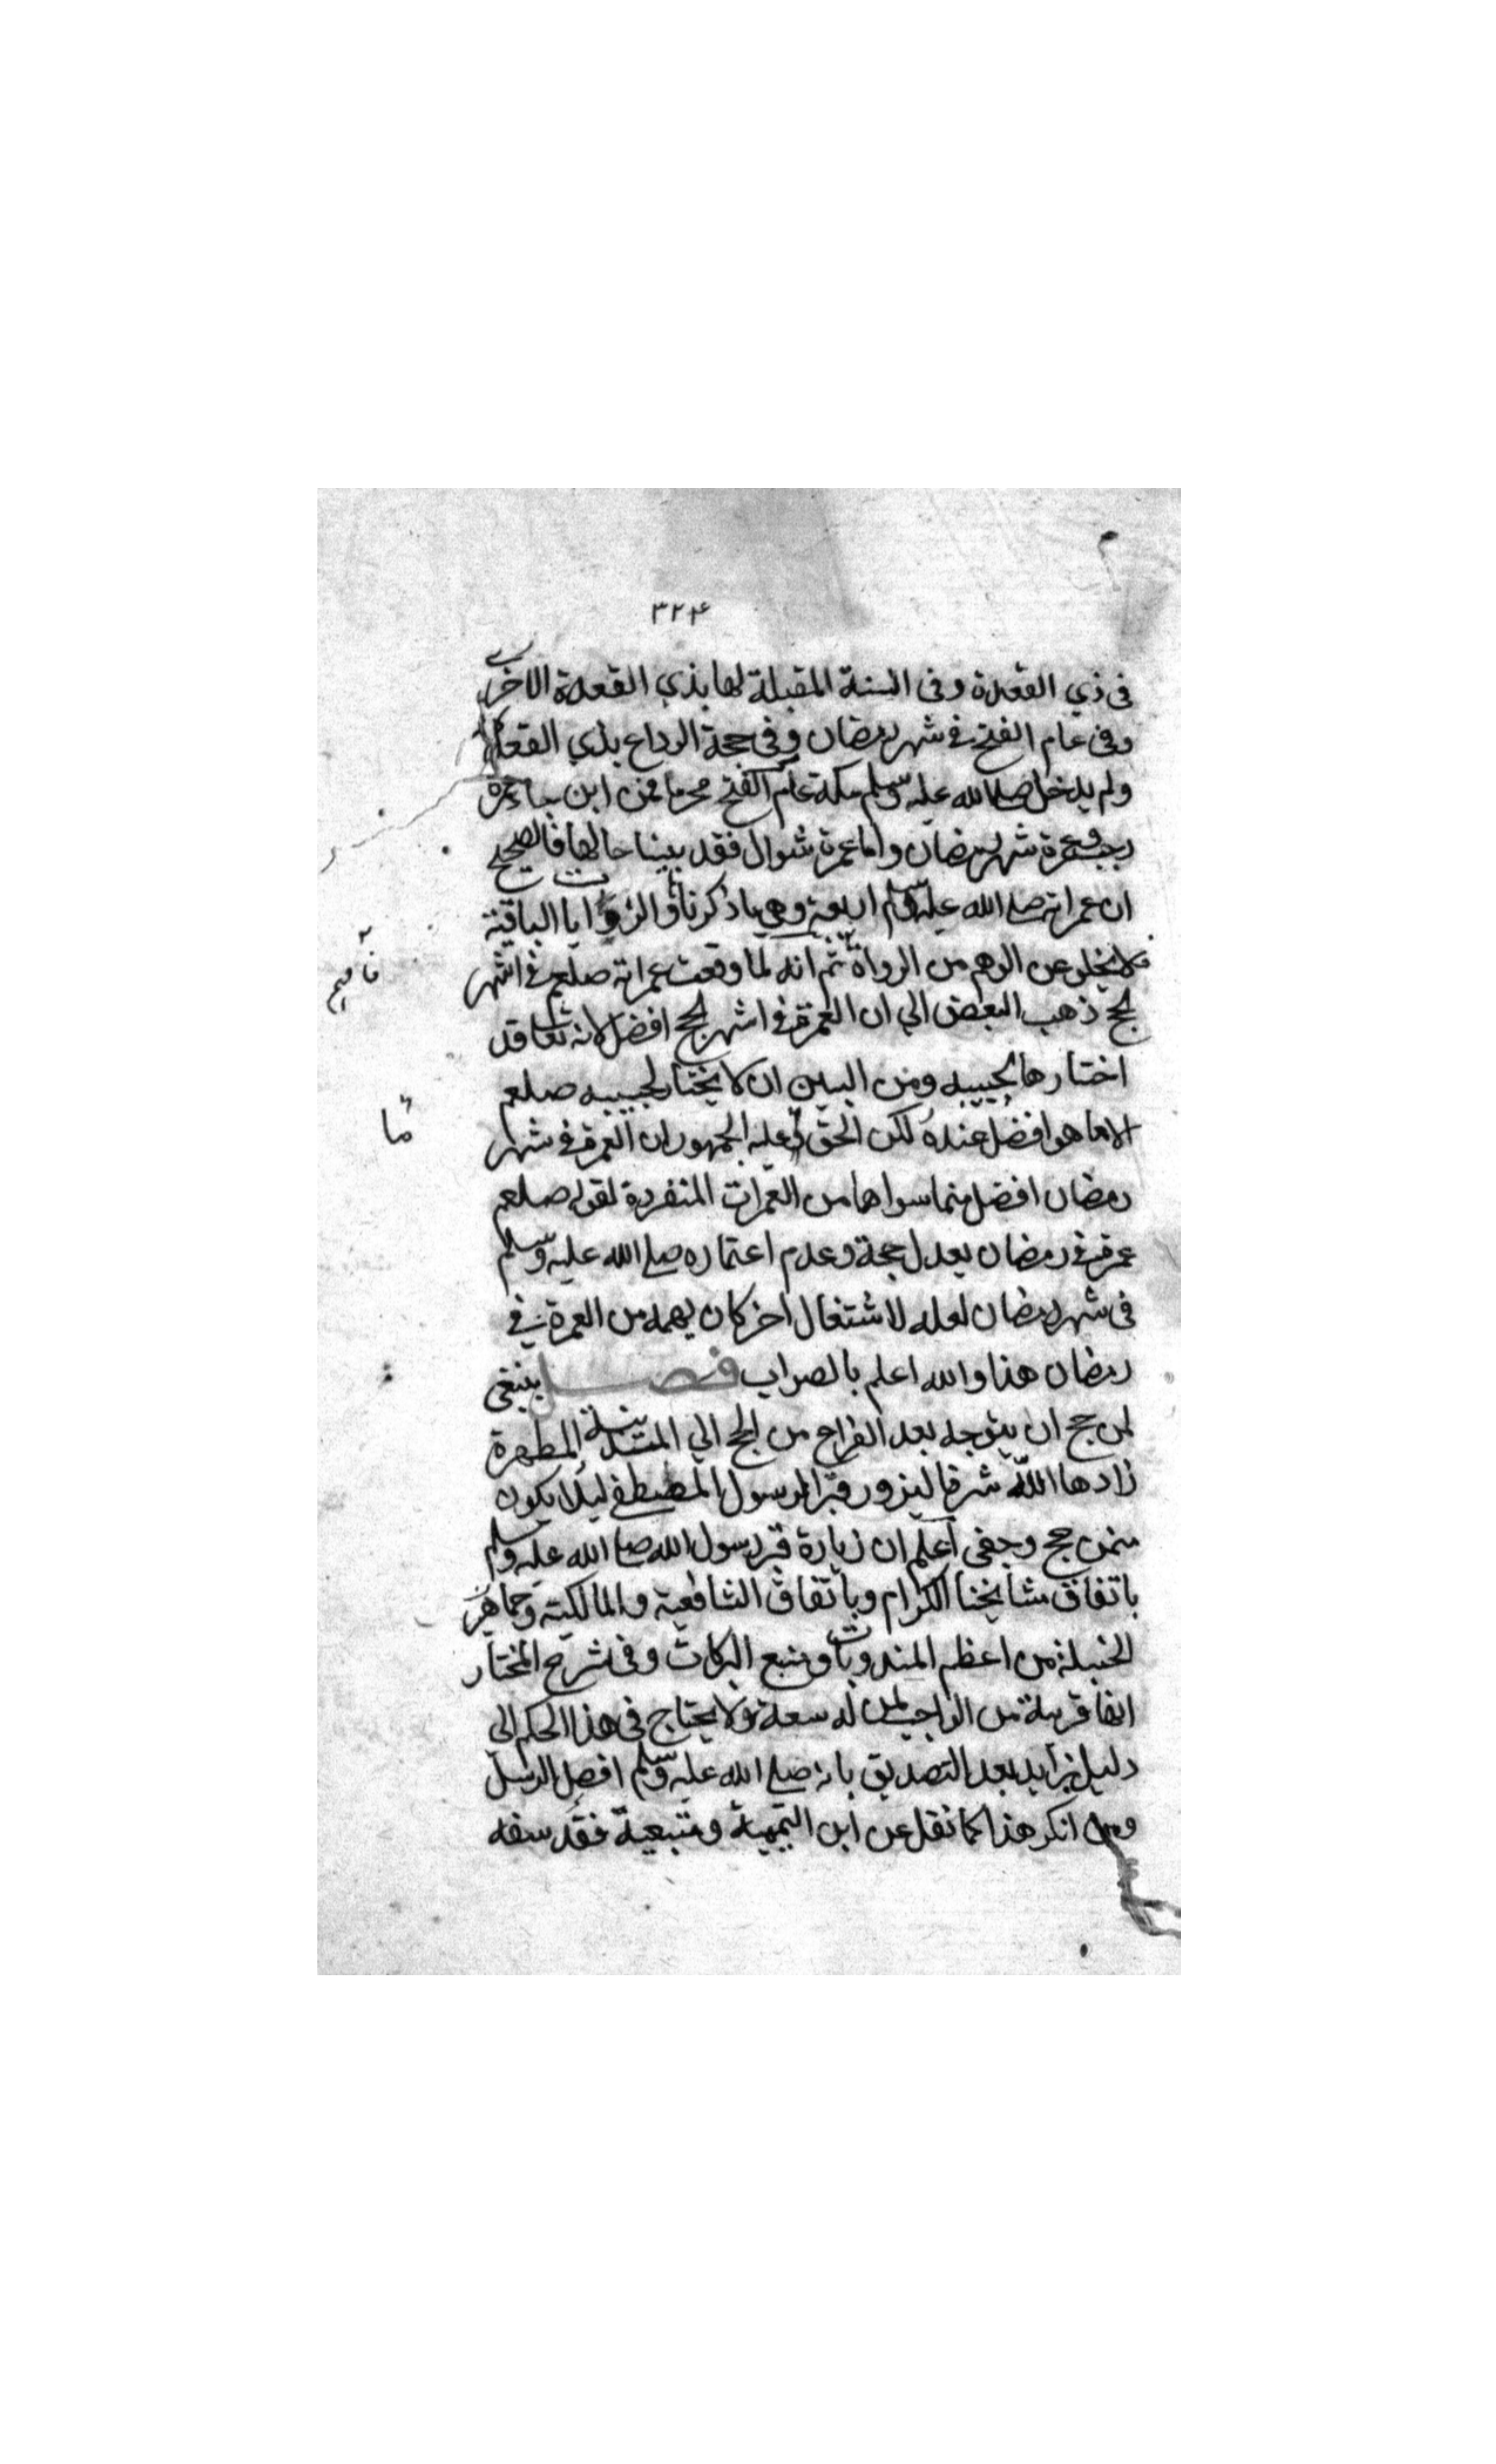 ٣٢٤
فى ذي القعدة وفى السنة المقبلة لها بذي القعدة الاخرى
وفى عام الفتح فى شهر رمضان وفى حجة الوداع بذي القعدة
ولم يدخل صلى الله عليه وسلم مكة عام الفتح محرما فمن اين جاء عمرة
رجب وعمرة شهر رمضان واما عمرة شوال فقد بينا حالها فالصحيح
ان عمراته صلى الله عليه وسلم اربعة وهي ما ذكرنا والروايات الباقية
فلا يخلو عن الوهم من الرواة ثم انه لما وقعت عمراته صلعم فى اشهر
الحج ذهب البعض الي ان العمرة فى اشهر الحج افضل لانه تعالى قد
اختارها لحبيبه ومن البين ان لا يختار لحبيبه صلعم
الا ما هو افضل عنده لكن الحق عليه الجمهور ان العمرة فى شهر
رمضان افضل مما سواها من العمرات المنفردة لقوله صلعم
عمرة فى رمضان يعدل حجة وعدم اعتماره صلى الله عليه وسلم
فى شهر رمضان لعله لاشتغال اخر كان يهمه من العمرة فى
رمضان هذا والله اعلم بالصواب فصل ينبغى
لمن حج ان يتوجه بعد الفراح من الحج الي المدينة المطهرة
زادها الله شرفا ليزور قبر الرسول المصطفى ليلا يكون
ممن حج وجفى اعلم ان زيارة قبر رسول الله صلى الله عليه وسلم
باتفاق مشايخنا الكرام وباتفاق الشافعية والمالكية وجماهر
الحنبلة من اعظم المندوبات ومنبع البركات وفى شرح المختار
انها قريبة من الواجب لمن له سعة ولا يحتاج فى هذا الحكم الي
دليل زايد بعد التصديق بانه صلى الله عليه وسلم افضل الرسل
ومن انكر هذا كما نقل عن ابن التيمية ومتبعية فقد سفه
ما